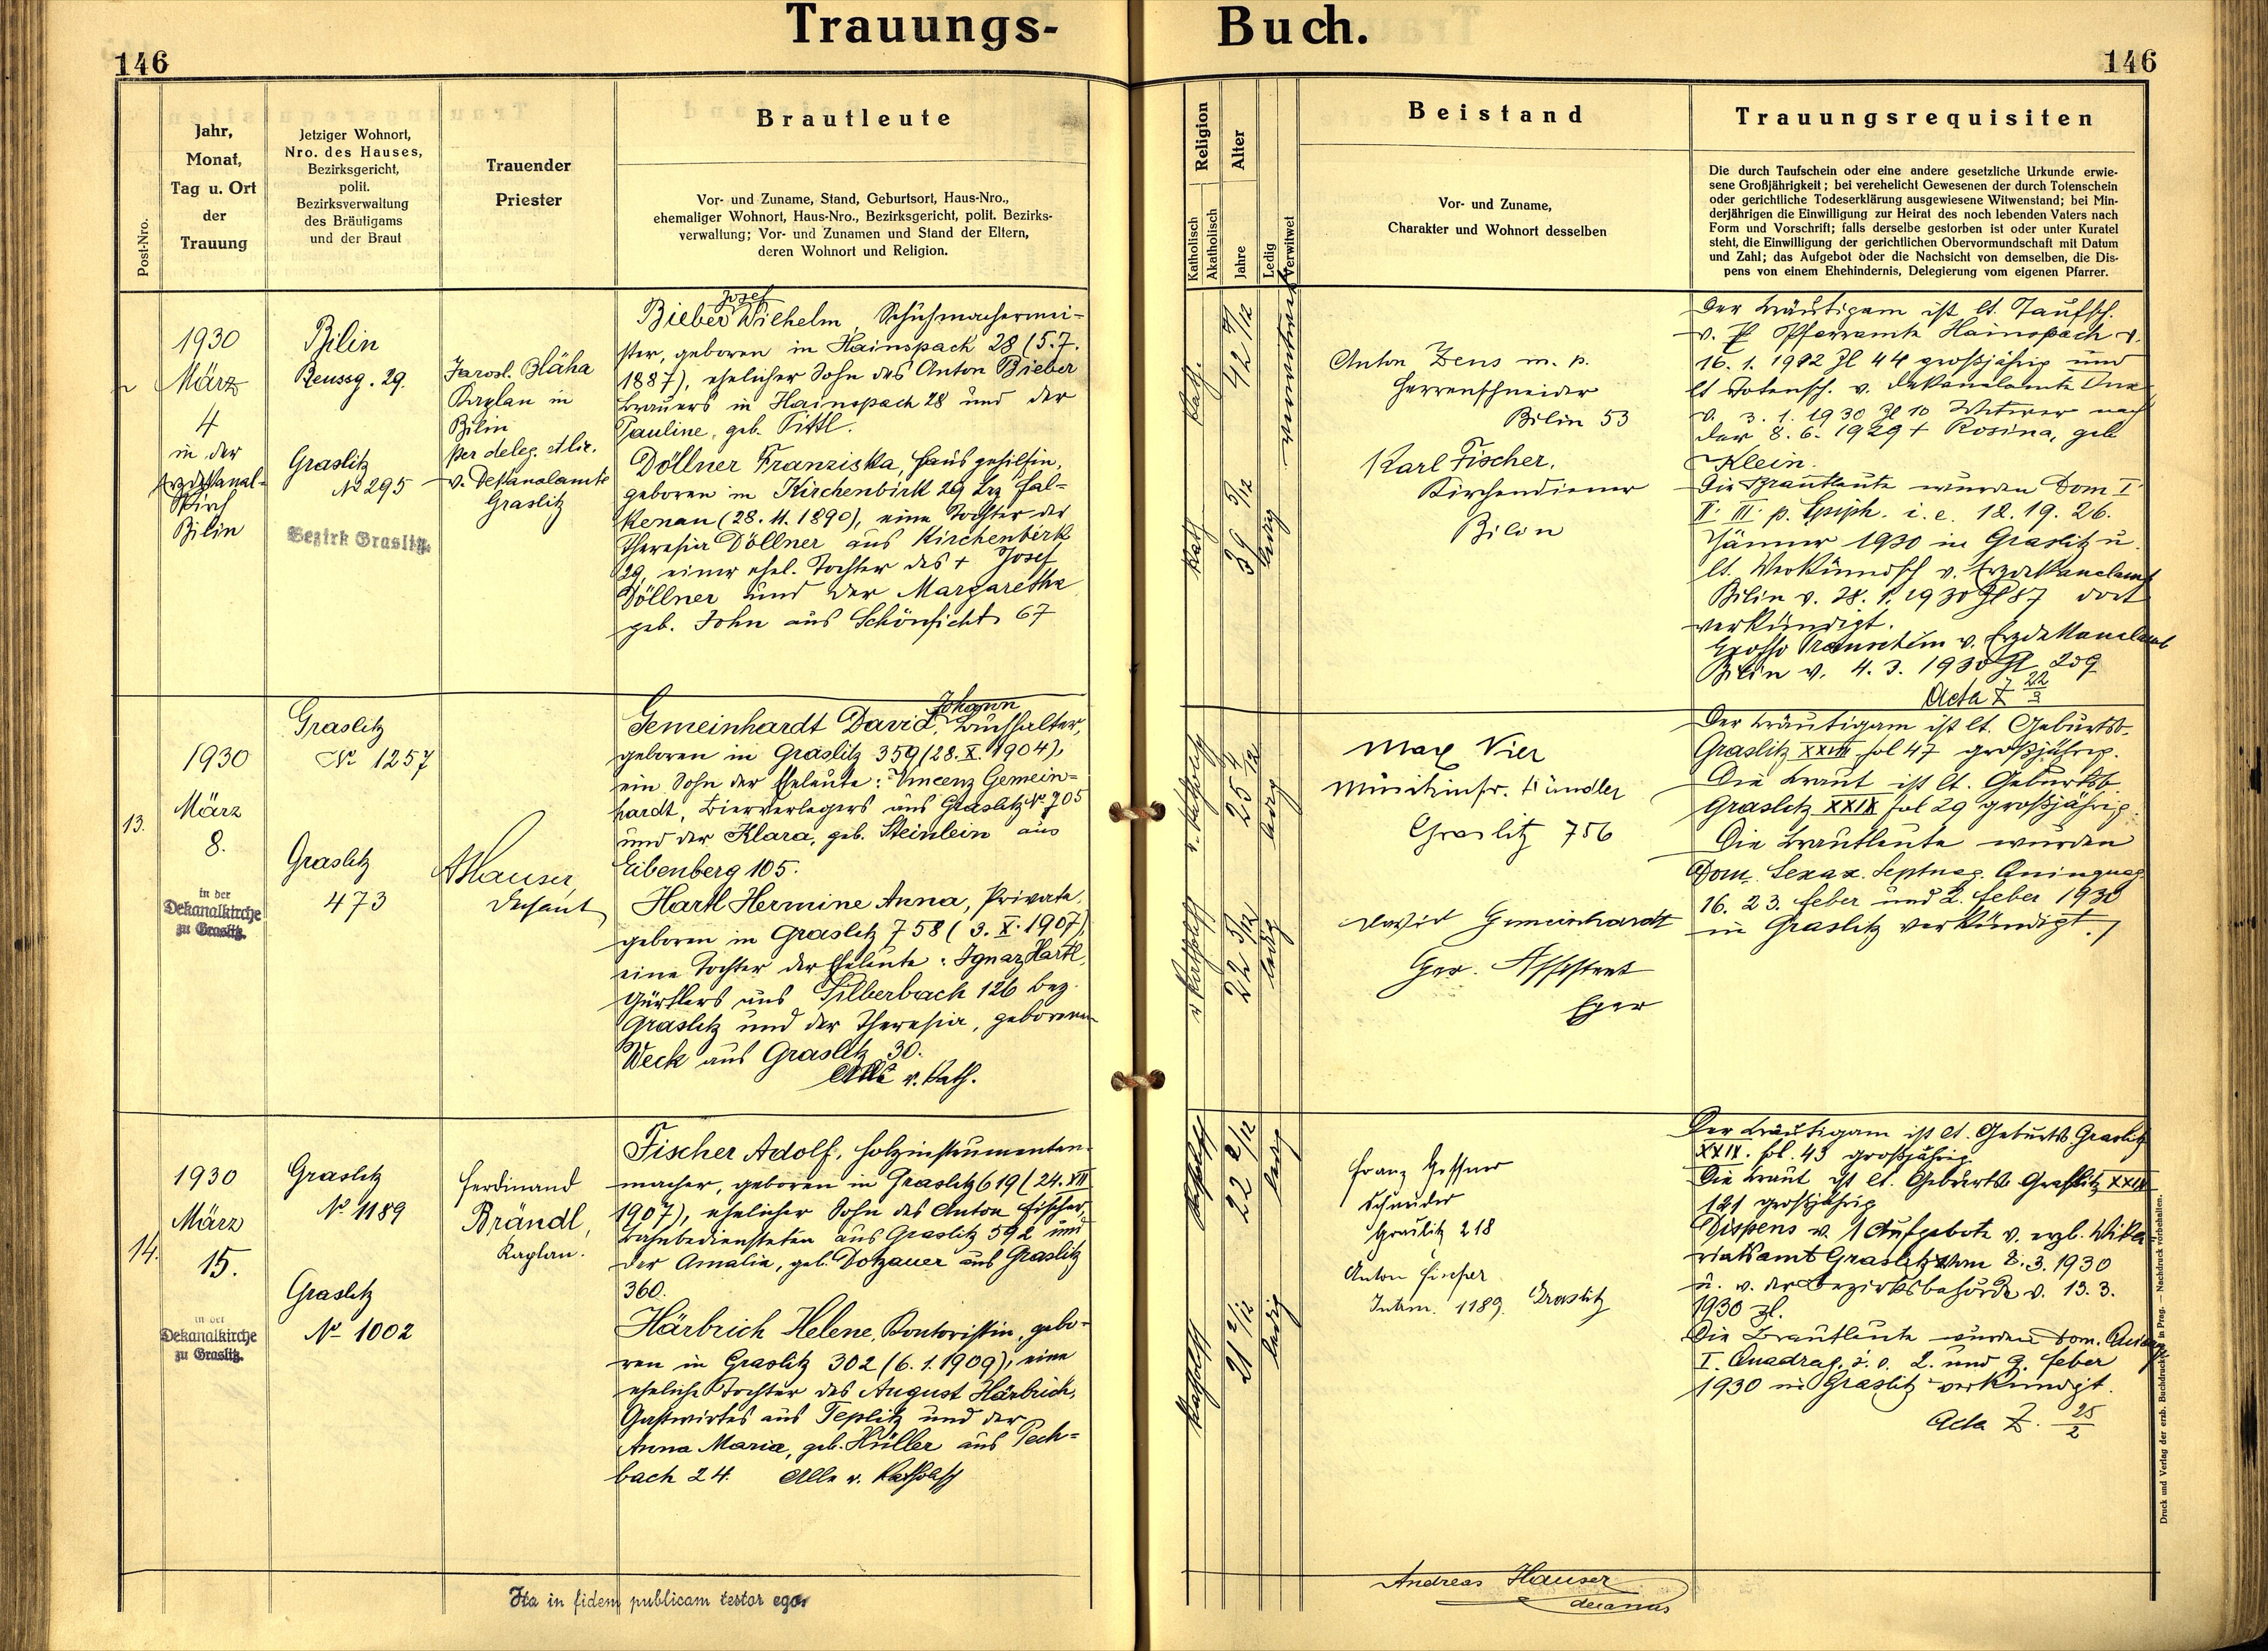 Trauungs-
Buch.
146
146
Post-Nro.
Jahr,
Monat,
Tag u. Ort
der
Trauung
Jetziger Wohnort,
Nro. des Hauses,
Bezirksgericht,
polit.
Bezirksverwaltung
des Bräutigams
und der Braut
Trauender
Priester
Brautleute
Vor- und Zuname, Stand, Geburtsort, Haus-Nro.,
ehemaliger Wohnort, Haus-Nro., Bezirksgericht, polit. Bezirks-
verwaltung; Vor- und Zunamen und Stand der Eltern,
deren Wohnort und Religion.
Religion
Katholisch
Akatholisch
Alter
Jahre
Ledig
Verwitwet
Beistand
Vor- und Zuname,
Charakter und Wohnort desselben
Trauungsrequisiten
Die durch Taufschein oder eine andere gesetzliche Urkunde erwie-
sene Großjährigkeit; bei verehelicht Gewesenen der durch Totenschein
oder gerichtliche Todeserklärung ausgewiesene Witwenstand; bei Min-
derjährigen die Einwilligung zur Heirat des noch lebenden Vaters nach
Form und Vorschrift; falls derselbe gestorben ist oder unter Kuratel
steht, die Einwilligung der gerichtlichen Obervormundschaft mit Datum
und Zahl; das Aufgebot oder die Nachsicht von demselben, die Dis-
pens von einem Ehehindernis, Delegierung vom eigenen Pfarrer.
1930
März
4
in der
Erzdekanal-
Kirch
Bilin
Bilin
Reussg. 29.
Graslitz
No 295
Bezirk Graslitz.
Jarosl. Bláha
Kaplan in
Bilin
per deleg. a lic.
v. Dekanalamte
Graslitz
Josef
Bieber Wilhelm, Schuhmachermei-
ster, geboren in Hainspach 28 (5.7.
1887), ehelicher Sohn des Anton Bieber
Brauers in Hainspach 28 und der
Pauline, geb. Pittl.
Döllner Franziska, Hausgehilfin,
geboren in Kirchenbirk 29 Bez Fal-
kenau (28.11.1890), eine Tochter der
Theresia Döllner aus Kirchenbirk
29, einer ehel. Tochter des + Josef
Döllner und der Margaretha
geb. John aus Schönficht 67
kath.
42 7/12
verwitwet
kath
39 3/12
ledig
Anton Zens m. p.
Herrenschneider
Bilin 53
Karl Fischer,
Kirchendiener
Bilin
Der Bräutigam ist lt. Taufsch.
v. Pfarramte Hainspach v.
16. 1. 1902 Zl 44 großjährig und
lt Totensch. v. Dekanalamte Dux
v. 3. 1. 1930 Zl 10 Witwer nach
der 8. 6. 1929 + Rosina, geb
Klein.
Die Brautleute wurden Dom I.
II. III. p. Epiph. i. e. 12. 19. 26.
Jänner 1930 in Graslitz u.
lt. Verkündsch v. Erzdekanalamt
Bilin v. 28. 1. 1930 Zl 87 dort
verkündigt.
Trauschein v. Erzdekanalamt
Bilin v. 4. 3. 1930 Zl 209
Acta Z 22/3
13.
1930
März
8.
in der
Dekanalkirche
zu Graslitz.
Graslitz
No 1257
Graslitz
473
AHauser,
Dechant
Johann
Gemeinhardt David, Buchhalter,
geboren in Graslitz 359 (28. X. 1904),
ein Sohn der Eheleute: Vincenz Gemein-
hardt, Bierverlegers aus Graslitz No 705
und der Klara, geb. Steinlein aus
Eibenberg 105.
Hartl Hermine Anna, Private,
geboren in Graslitz 758 (3. X. 1907),
eine Tochter der Eheleute: Ignaz Hartl,
Gürtlers aus Silberbach 126 Bez.
Graslitz und der Theresia, geborenen
Weck aus Graslitz 30.
Alle r. kath.
r. katholisch
25 4/12
ledig
r. katholisch
22 5/12
ledig
Max Vier
Musikinstr. Händler
Graslitz 756
David Gemeinhardt
Ger. Assistent
Eger
Der Bräutigam ist lt. Geburtsb.
Graslitz XXVIII fol 47 großjährig.
Die Braut ist lt. Geburtsb.
Graslitz XXIX fol 29 großjährig.
Die Brautleute wurden
Dom. Sexax. Septuag. Quinquag
16. 23. Feber und 2. Feber 1930
in Graslitz verkündigt.
14.
1930
März
15.
in der
Dekanalkirche
zu Graslitz.
Graslitz
No 1189
Graslitz
No 1002
Ferdinand
Brändl,
Kaplan.
Fischer Adolf, Holzinstrumenten-
macher, geboren in Graslitz 619 (24. XII
1907), ehelicher Sohn des Anton Fischer,
Bahnbediensteten aus Graslitz 592 und
der Amalia, geb. Dotzauer aus Graslitz
360.
Härbrich Helene, Kontoristin, gebo-
ren in Graslitz 302 (6.1.1909), eine
eheliche Tochter des August Härbrich,
Gastwirtes aus Teplitz und der
Anna Maria, geb. Hüller aus Pech-
bach 24. Alle r. katholisch
katholisch
22 2/12
ledig
katholisch
21 2/12
ledig
Franz Gessner
Schneider
Graslitz 218
Anton Fischer
Instrm. 1189 Graslitz
Der Bräutigam ist lt. Geburtsb. Graslitz
XXIX. fol. 43 großjährig
Die Braut ist lt. Geburtsb. Graslitz XXIX
121 großjährig
Dispens v. 1 Aufgebote v. erzb. Vika-
riatsamt Graslitz vom 8. 3. 1930
u. v. der Bezirksbehörde v. 13. 3.
1930 zl.
Die Brautleute wurden Dom. Quinqu
I. Quadrag. i. e. 2. und 9. Feber
1930 in Graslitz verkündigt.
Acta Z. 25/2
Druck und Verlag der erzb. Buchdruckerei in Prag. — Nachdruck vorbehalten.
Ita in fidem publicam testor ego.
Andreas Hauser
decanus